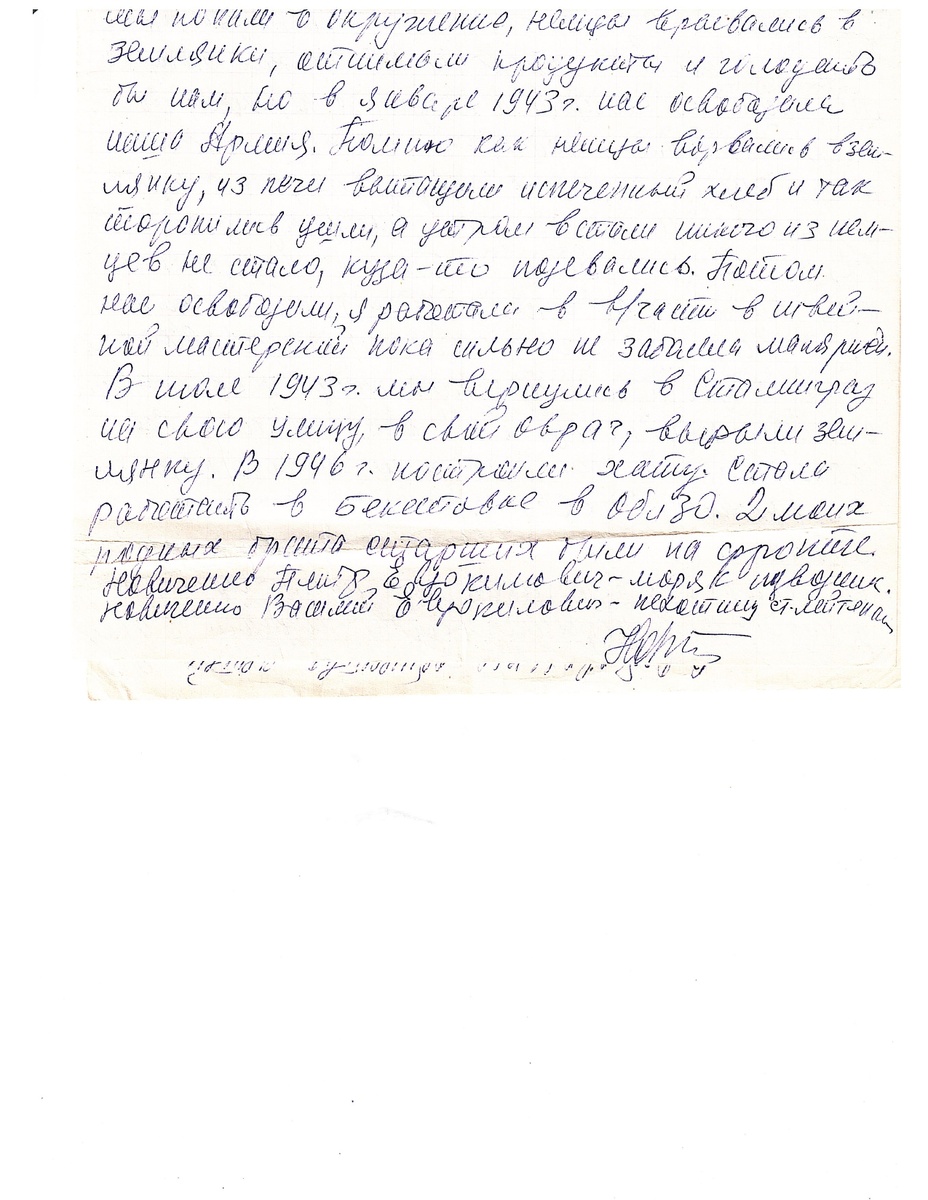 мы попали в окружение, немцы врывались в
землянки, отнимали продукты и голодать
бы нам, но в январе 1943 г. нас освободила
наша Армия. Помню как немцы ворвались в зем-
лянку, из печи вытащили испеченный хлеб и так
торопились ушли, а утром встали никого из нем-
цев не стало, куда-то подевались. Потом
нас освободили, я работала в в/части в швей-
ной мастерской пока сильно не заболела малярией.
В июле 1943 г. мы вернулись в Сталинград
на свою улицу, в свой овраг, вырыли зем-
лянку. В 1946 г. построили хату. Стала
работать в Бекетовке в ОблЗО. 2 моих
родных брата старших были на фронте.
Новиченко Петр Евдокимович - моряк подводник.
Новиченко Василий Евдокимович - пехотинец ст. лейтенан